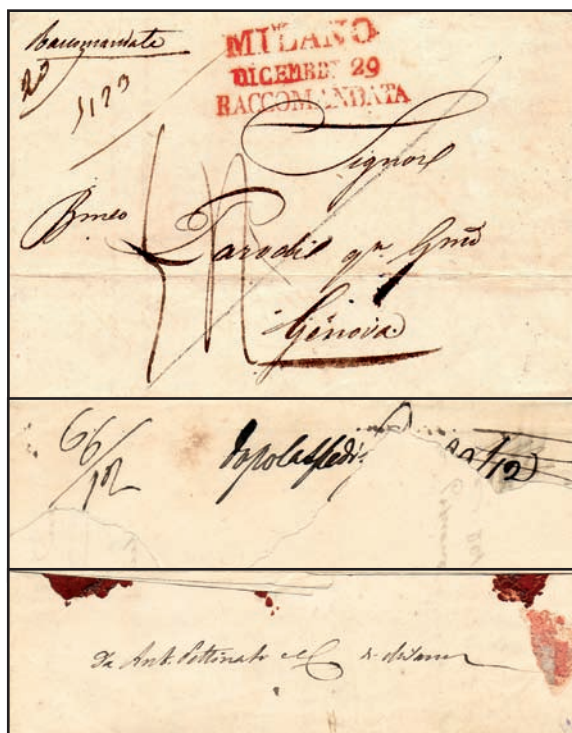 Raccomandata
MILANO
DICEMBR. 29
RACCOMANDATA
Signore
Bmeo Parodi qm Gmo
Genova
66/12
dopo la spedi. 29/12
Da Ant. Pettinati e C di Milano